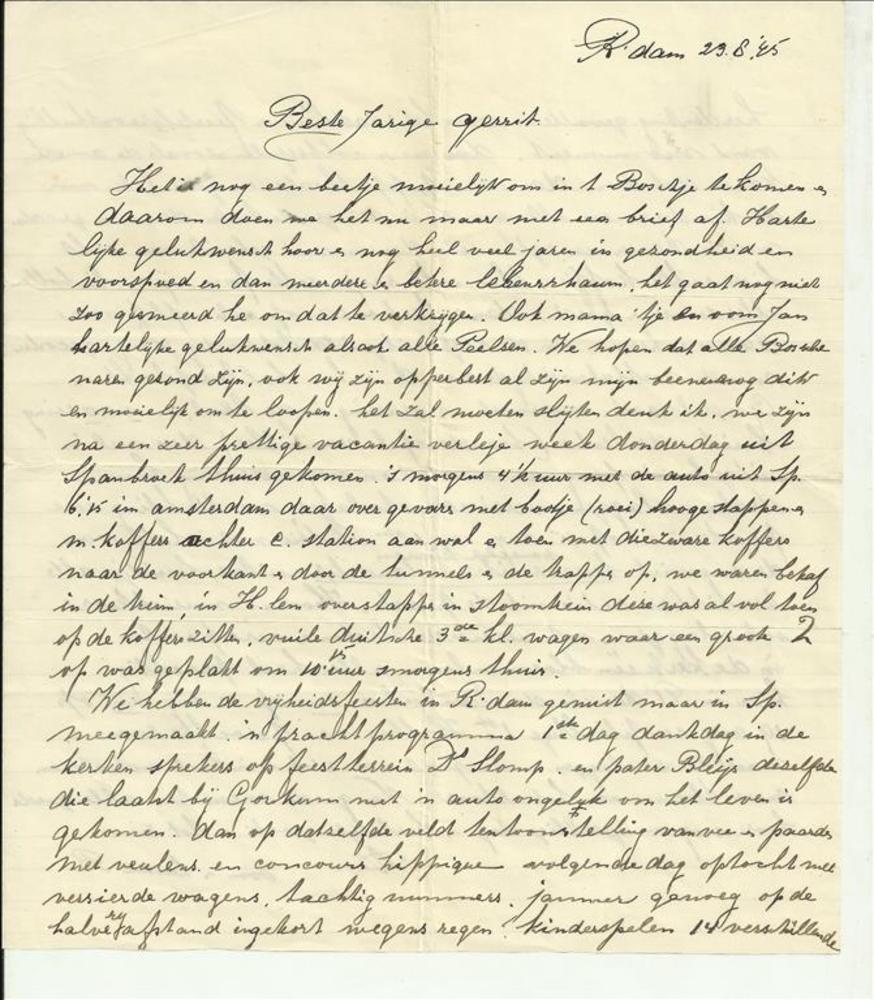 R.dam 23.8.'45
Beste Jarige Gerrit.
Het is nog een beetje moeielijk om in 't Boschje te komen en
daarom doen we het nu maar met een brief af. Harte
lijke gelukwensch hoor en nog heel veel jaren in gezondheid en
voorspoed en dan meerdere en betere, het gaat nog niet
zoo gesmeerd he om dat te verkrijgen. Ook mama'tje en oom Jan
hartelijke gelukwensch alsook alle Peelsen. We hopen dat alle Bossche
naren gezond zijn, ook wij zijn opperbest al zijn mijn beenen nog dik
en moeielijk om te loopen. het zal moeten slijten denk ik. we zijn
na een zeer prettige vacantie verleje week donderdag uit
Spanbroek thuis gekomen. 's morgens 4½ uur met de auto uit Sp.
6.15 in amsterdam daar over gevaren met bootje (roei) hooge stappen en
m. koffers achter C. station aan wal en toen met die zware koffers
naar de voorkant en door de tunnels en de trappen op, we waren bekaf
in de trein, in H.lem overstappen in stoomtrein deze was al vol toen
op de koffers zitten, vuile duitsche 3de kl. wagen waar een groote 2
op was geplakt om 10.15 uur smorgens thuis.
We hebben de vrijheidsfeesten in R.dam gemist maar in Sp.
meegemaakt. 'n prachtprogramma 1ste dag dankdag in de
kerken sprekers op feestterrein Ds Slomp. en pater Bleijs dezelfde
die laatst bij Gorkum met 'n auto ongeluk om het leven is
gekomen. dan op datzelfde veld tentoonstelling van vee en paarden
met veulens. en concours hippique volgende dag optocht met
versierde wagens, tachtig nummers. jammer genoeg op de
halve afstand ingekort wegens regen. kinderspelen 14 verschillende